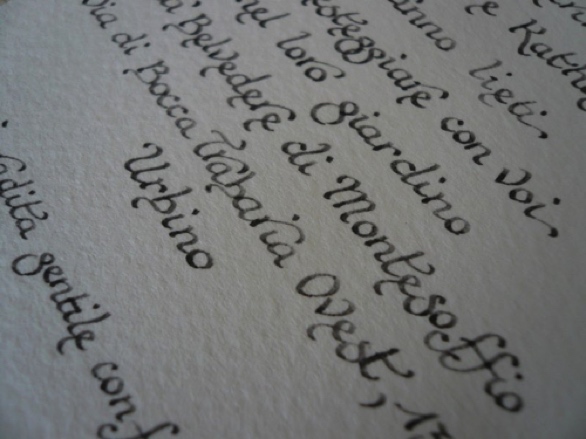 e Kath
anno lieti
steggiare con voi
nel loro giardino
Belvedere di Montesoffio
Via di Bocca Trabaria Ovest, 13
Urbino
adita gentile conf